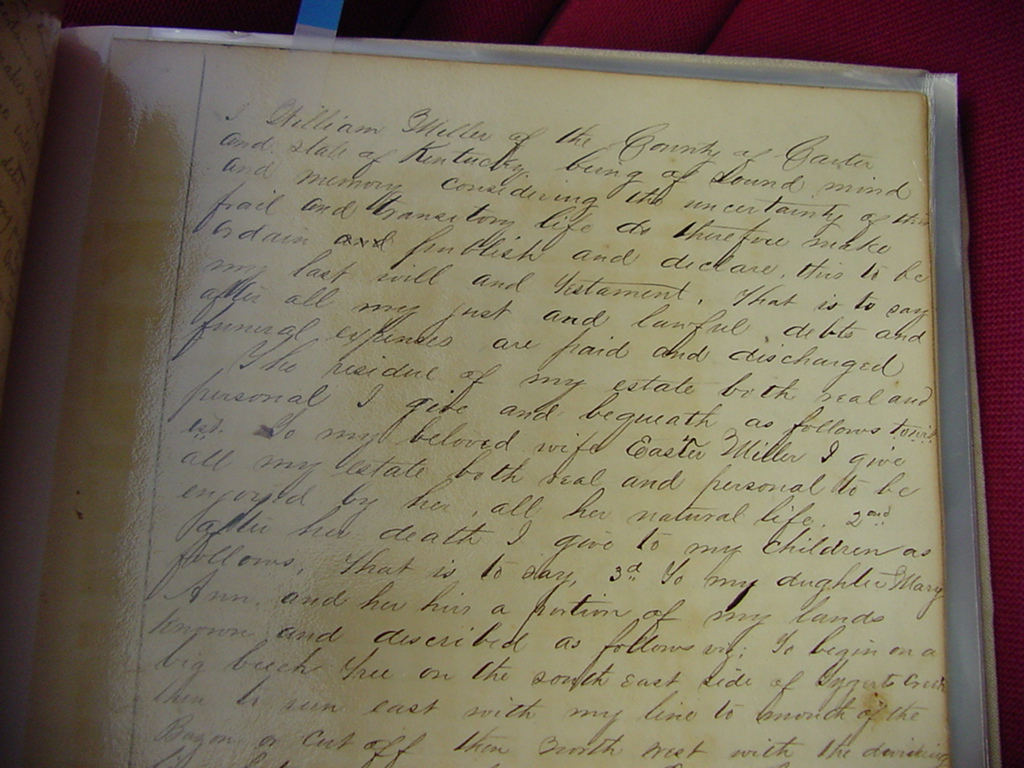 I William Miller of the County of Carter
and State of Kentucky being of sound mind
and memory considering the uncertainty of this
frail and transitory life do therefore make
ordain and publish and declare this to be
my last will and testament, that is to say
after all my just and lawful debts and
funeral expenses are paid and discharged
The residue of my estate both real and
personal I give and bequeath as follows towit
1st To my beloved wife Easter Miller I give
all my Estate both Real and personal to be
enjoyed by her all her natural life 2nd
After her death I give to my Children as
follows, that is to say, 3rd To my daughter Mary
Ann and her heirs a portion of my lands
known and described as follows viz; To begin on a
big beech tree on the south east side of
then to run east with my line to the
then North west with the dividing